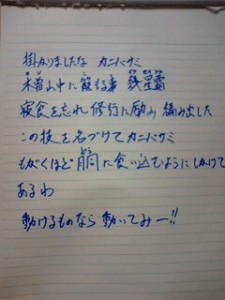 掛かりましたな カニバサミ
木曽山中に籠る事 幾星霜
寝食を忘れ 修行に励み 編みました
この技を名づけてカニバサミ
もがくほど 胴に食い込むようにしかけて
あるわ
動けるものなら 動いてみー!!